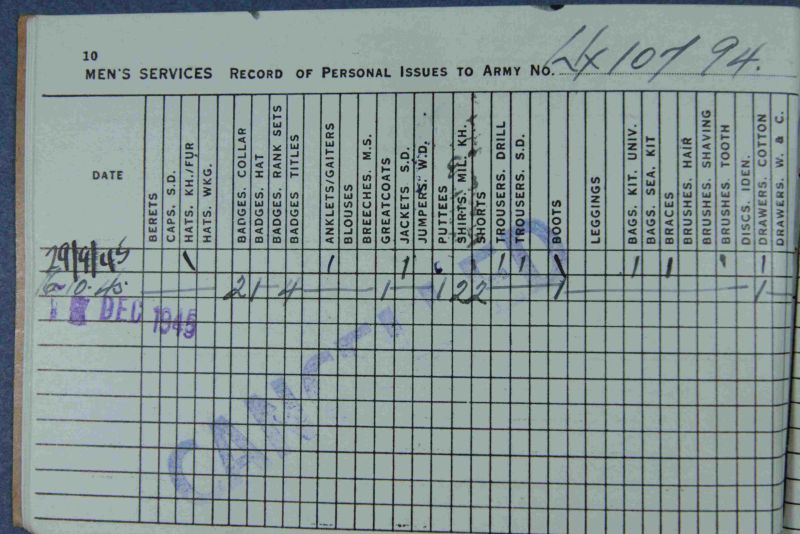 10
MEN'S SERVICES RECORD OF PERSONAL ISSUES TO ARMY No. 10794.
DATE
BERETS
CAPS. S.D.
HATS. KH./FUR
HATS. WKG.
BADGES. COLLAR
BADGES. HAT
BADGES. RANK SETS
BADGES TITLES
ANKLETS/GAITERS
BLOUSES
BREECHES. M.S.
GREATCOATS
JACKETS S.D.
JUMPERS. W.D.
PUTTEES
SHIRTS. MIL. KH.
SHORTS
TROUSERS. DRILL
TROUSERS. S.D.
BOOTS
LEGGINGS
BAGS. KIT. UNIV.
BAGS. SEA. KIT
BRACES
BRUSHES. HAIR
BRUSHES. SHAVING
BRUSHES. TOOTH
DISCS. IDEN.
DRAWERS. COTTON
DRAWERS. W. & C.
29/9/45 1 1 1 1 1 1 1 1 1
10.45 2 1 4 1 1 2 2 1 1
DEC 1945
CANCELLED